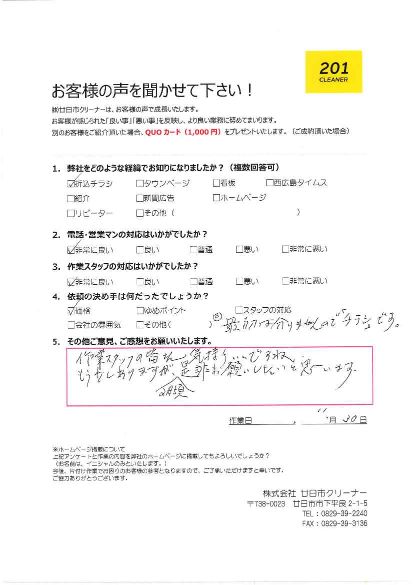 201
CLEANER
お客様の声を聞かせて下さい！
㈱廿日市クリーナーは、お客様の声で成長いたします。
お客様が感じられた「良い事」「悪い事」を反映し、より良い業務に努めてまいります。
別のお客様をご紹介頂いた場合、QUOカード（1,000円）をプレゼントいたします。（ご成約頂いた場合）
1．弊社をどのような経緯でお知りになりましたか？（複数回答可）
☑折込チラシ □タウンページ □看板 □西広島タイムス
□紹介 □新聞広告 □ホームページ
□リピーター □その他（ ）
2．電話・営業マンの対応はいかがでしたか？
☑非常に良い □良い □普通 □悪い □非常に悪い
3．作業スタッフの対応はいかがでしたか？
☑非常に良い □良い □普通 □悪い □非常に悪い
4．依頼の決め手は何だったでしょうか？
☑価格 □ゆめポイント □スタッフの対応
□会社の雰囲気 □その他（ ） 分りませんのでチラシです。
5．その他ご意見、ご感想をお願いいたします。
作業スタッフの皆さん気持いいですね。
もう少しありますが、是非お願いしたいと思います。
2月頃
作業日 11月30日
※ホームページ掲載について
上記アンケートと作業の内容を弊社のホームページに掲載してもよろしいでしょうか？
（お名前は、イニシャルのみといたします。）
今後、片付け作業でお困りのお客様の参考となりますので、ご了承いただけますと幸いです。
ご協力ありがとうございます。
株式会社 廿日市クリーナー
〒738-0023 廿日市市下平良2-1-5
TEL：0829-39-2240
FAX：0829-39-3136